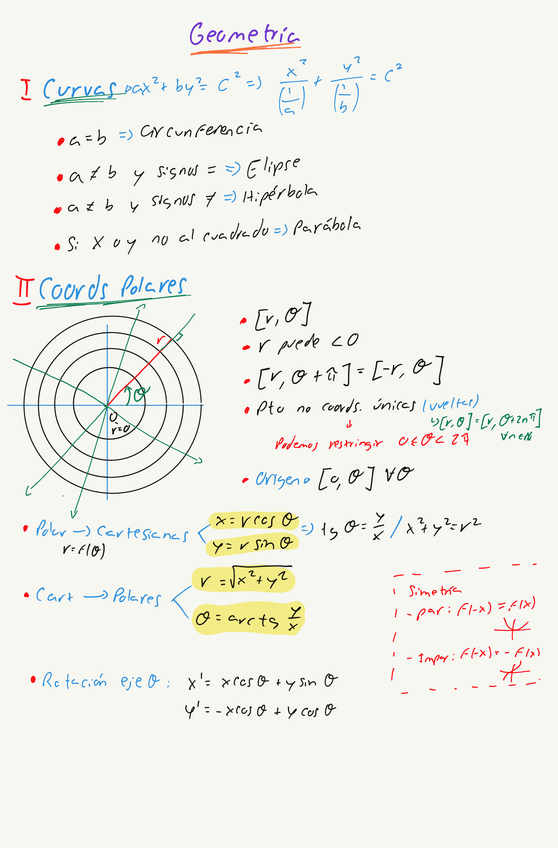 Geometría
I Curvas → ax² + by² = c² => x²/(1/a) + y²/(1/b) = c²
• a = b => Circunferencia
• a ≠ b y signos = => Elipse
• a ≠ b y signos ≠ => Hipérbola
• Si x o y no al cuadrado => Parábola
II Coords Polares
r
θ
O
r=0
• [r, θ]
• r puede < 0
• [r, θ + π] = [-r, θ]
• Pto no coords. únicas (vueltas)
↳ [r, θ] = [r, θ+2nπ]
∀n∈ℕ
↓
Podemos restringir 0 ≤ θ < 2π
• Origen [0, θ] ∀θ
• Polar → Cartesianas
r = f(θ)
x = r cos θ
y = r sin θ
=> tg θ = y/x / x² + y² = r²
• Cart → Polares
r = √(x² + y²)
θ = arctg y/x
Simetría
- par: f(-x) = f(x)
- Impar: f(-x) = - f(x)
• Rotación eje θ: x' = x cos θ + y sin θ
y' = - x cos θ + y cos θ